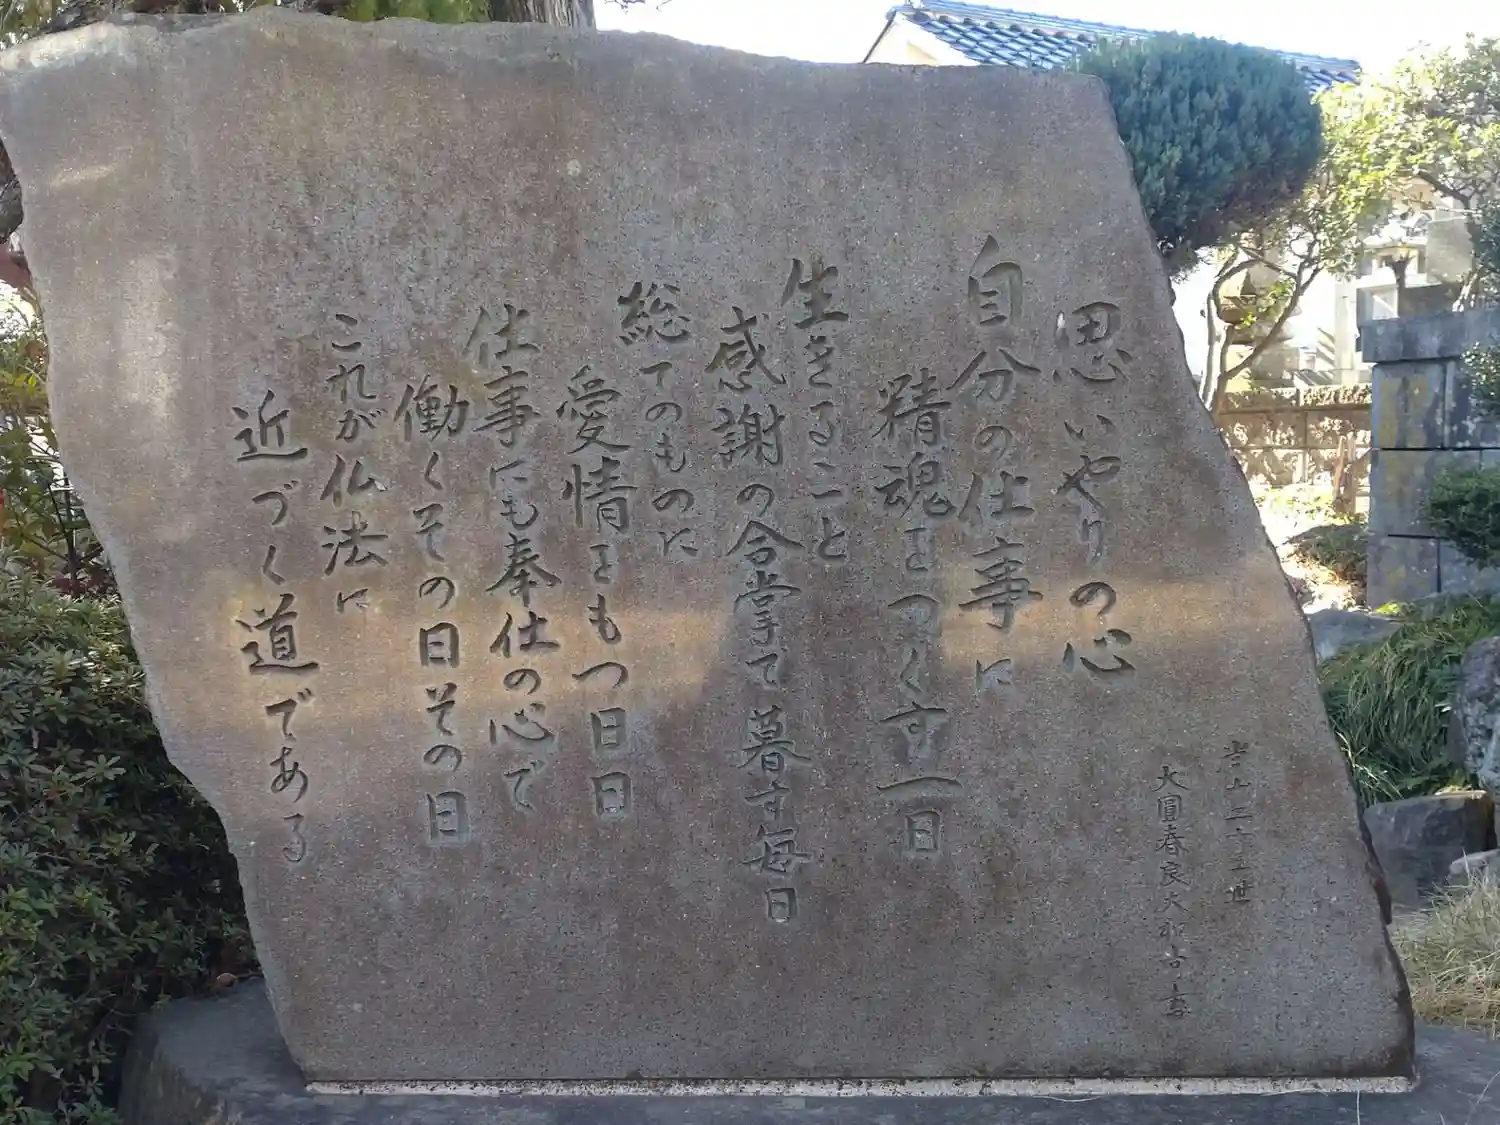 思いやりの心
自分の仕事に
精魂をつくす一日
生きること
感謝の合掌で暮す毎日
総てのものに
愛情をもつ日日
仕事にも奉仕の心で
働くその日その日
これが仏法に
近づく道である
当山三十五世
大圓春良大和尚書